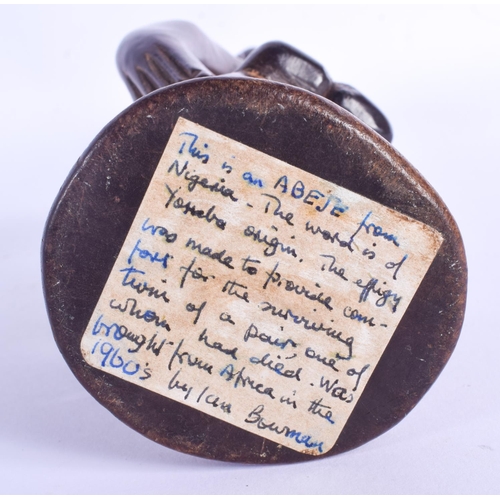 This is an ABEJE from
Nigeria - The word is of
Yoruba origin. The effigy
was made to provide com-
fort for the surviving
twin of a pair, one of
whom had died. Was
brought from Africa in the
1960s by Ian Bowman